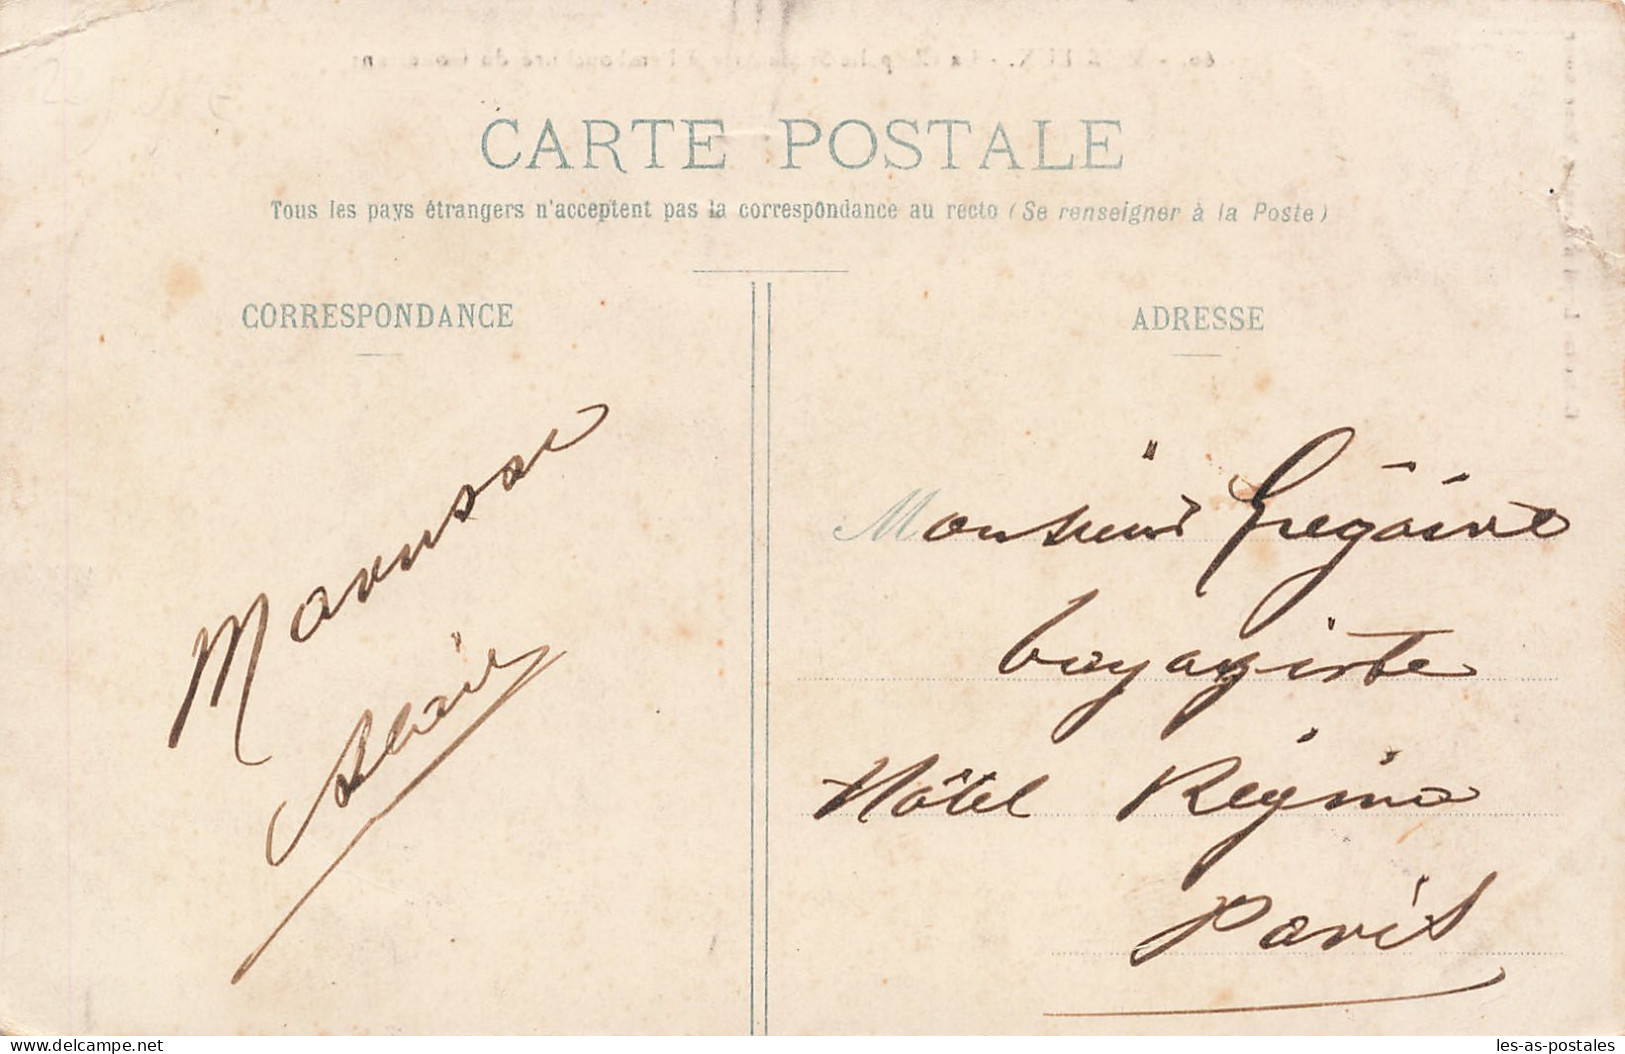 CARTE POSTALE
Tous les pays étrangers n'acceptent pas la correspondance au recto (Se renseigner à la Poste)
CORRESPONDANCE
ADRESSE
Monsieur Grégoire
voyagiste
Hôtel Régina
Paris
Delcampe.net
les-as-postales